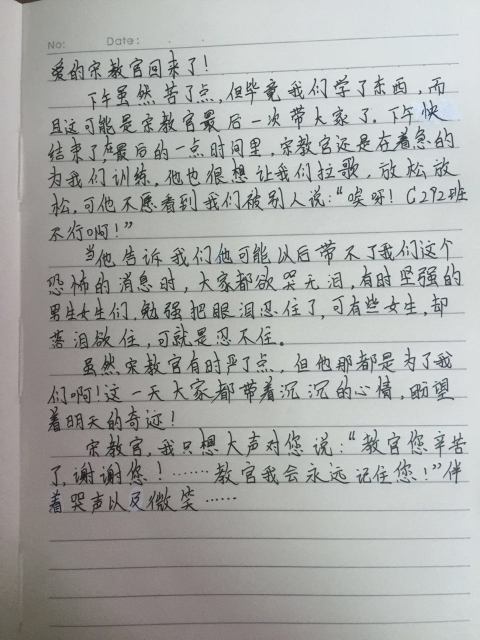 No:
Date: . .
爱的宋教官回来了！
下午虽然苦了点,但毕竟我们学了东西,而
且这可能是宋教官最后一次带大家了。下午快
结束了,在最后的一点时间里,宋教官还是在着急的
为我们训练,他也很想让我们拉歌,放松放
松,可他不愿看到我们被别人说:“唉呀！C292班
不行啊！”
当他告诉我们他可能以后带不了我们这个
恐怖的消息时,大家都欲哭无泪,有时坚强的
男生女生们,勉强把眼泪忍住了,可有些女生,却
落泪欲住,可就是忍不住。
虽然宋教官有时严了点,但他那都是为了我
们啊！这一天大家都带着沉沉的心情,盼望
着明天的奇迹！
宋教官,我只想大声对您说:“教官您辛苦
了,谢谢您！……教官我会永远记住您！”伴
着哭声以及微笑……